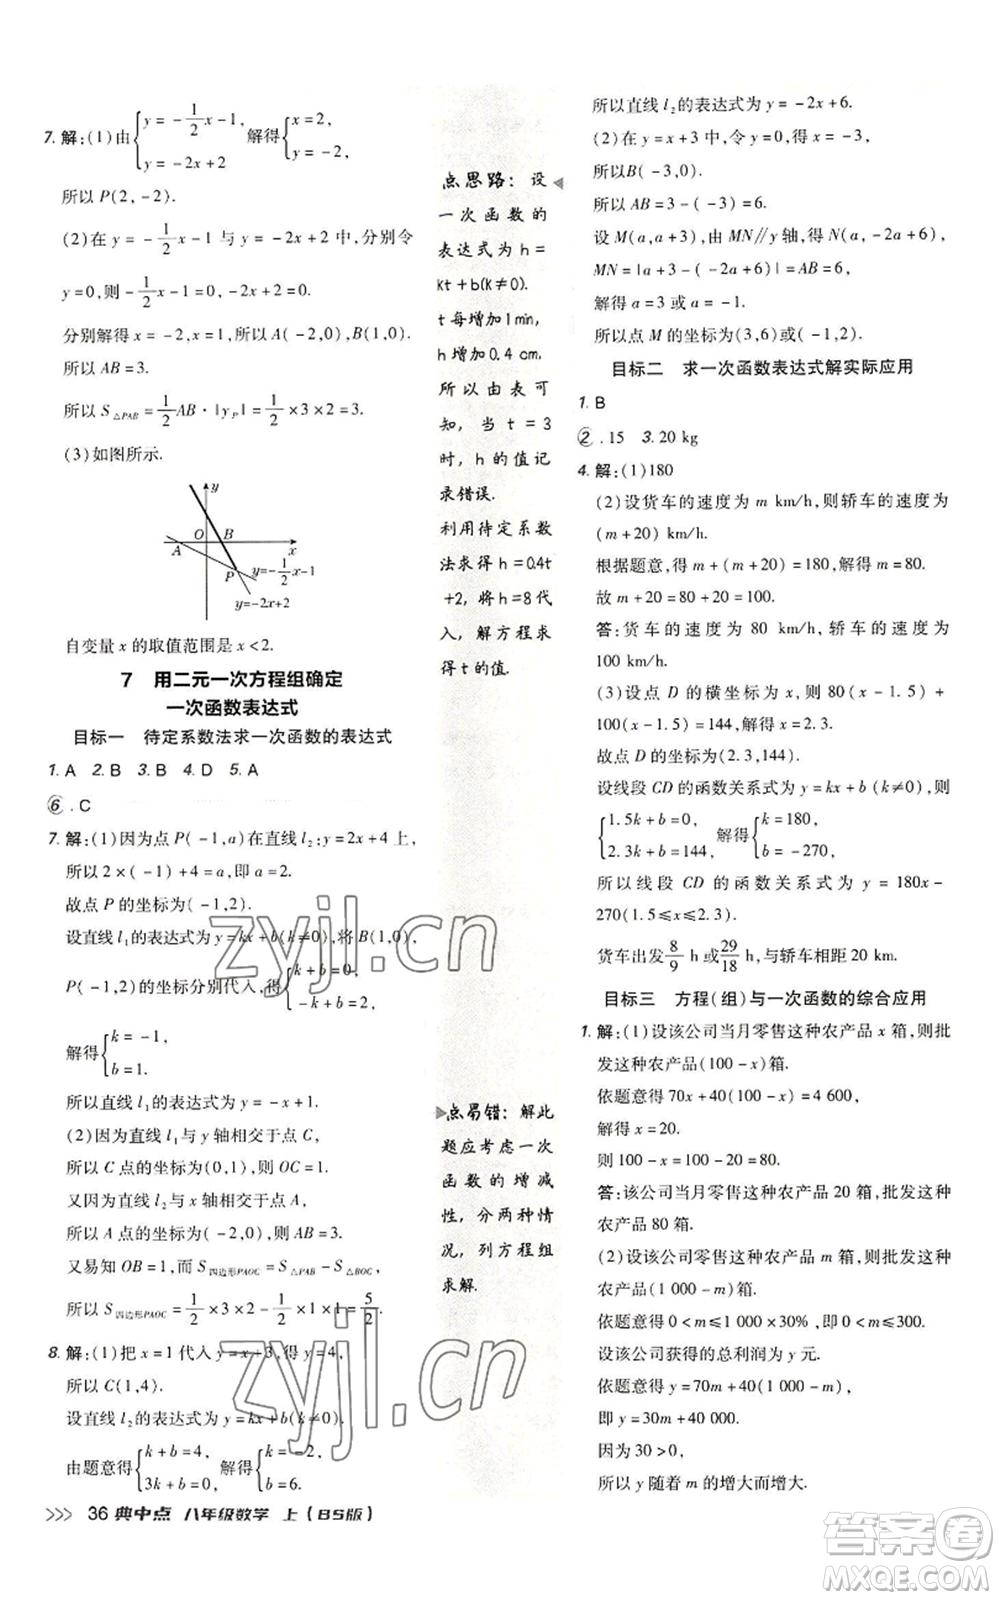 7. 解:(1)由{y=-1/2x-1, y=-2x+2 解得{x=2, y=-2,
所以 P(2,-2).
(2)在 y=-1/2x-1 与 y=-2x+2 中,分别令
y=0,则-1/2x-1=0,-2x+2=0.
分别解得 x=-2,x=1,所以 A(-2,0),B(1,0).
所以 AB=3.
所以 S△PAB=1/2AB·|yP|=1/2×3×2=3.
(3)如图所示.
y
A O B x
P y=-1/2x-1
y=-2x+2
自变量 x 的取值范围是 x<2.
7 用二元一次方程组确定
一次函数表达式
目标一 待定系数法求一次函数的表达式
1. A 2. B 3. B 4. D 5. A
6. C
7. 解:(1)因为点 P(-1,a)在直线 l2:y=2x+4 上,
所以 2×(-1)+4=a,即 a=2.
故点 P 的坐标为(-1,2).
设直线 l1的表达式为 y=kx+b(k≠0),将 B(1,0),
P(-1,2)的坐标分别代入,得{k+b=0, -k+b=2,
解得{k=-1, b=1.
所以直线 l1的表达式为 y=-x+1.
(2)因为直线 l1与 y 轴相交于点 C,
所以 C 点的坐标为(0,1),所以 OC=1.
又因为直线 l2与 x 轴相交于点 A,
所以 A 点的坐标为(-2,0),则 AB=3.
又易知 OB=1,而 S四边形PAOC=S△PAB-S△BOC,
所以 S四边形PAOC=1/2×3×2-1/2×1×1=5/2.
8. 解:(1)把 x=1 代入 y=x+3,得 y=4,
所以 C(1,4).
设直线 l2的表达式为 y=kx+b(k≠0).
由题意得{k+b=4, 3k+b=0, 解得{k=-2, b=6.
36 典中点 八年级数学 上(BS版)
点思路:设
一次函数的
表达式为 h=
kt+b(k≠0).
t 每增加 1 min,
h 增加 0.4 cm.
所以由表可
知,当 t=3
时,h 的值记
录错误.
利用待定系数
法求得 h=0.4t
+2,将 h=8 代
入,解方程求
得 t 的值.
点易错:解此
题应考虑一次
函数的增减
性,分两种情
况,列方程组
求解.
所以直线 l2的表达式为 y=-2x+6.
(2)在 y=x+3 中,令 y=0,得 x=-3,
所以B(-3,0).
所以 AB=3-(-3)=6.
设 M(a,a+3),由 MN∥y 轴,得 N(a,-2a+6),
MN=|a+3-(-2a+6)|=AB=6,
解得 a=3 或 a=-1.
所以点 M 的坐标为(3,6)或(-1,2).
目标二 求一次函数表达式解实际应用
1. B
2. 15 3. 20 kg
4. 解:(1)180
(2)设货车的速度为 m km/h,则轿车的速度为
(m+20) km/h.
根据题意,得 m+(m+20)=180,解得 m=80.
故 m+20=80+20=100.
答:货车的速度为 80 km/h,轿车的速度为
100 km/h.
(3)设点 D 的横坐标为 x,则 80(x-1.5)+
100(x-1.5)=144,解得 x=2.3.
故点 D 的坐标为(2.3,144).
设线段 CD 的函数关系式为 y=kx+b(k≠0),则
{1.5k+b=0, 2.3k+b=144, 解得{k=180, b=-270,
所以线段 CD 的函数关系式为 y=180x-
270(1.5≤x≤2.3).
货车出发 8/9 h 或 29/18 h,与轿车相距 20 km.
目标三 方程(组)与一次函数的综合应用
1. 解:(1)设该公司当月零售这种农产品 x 箱,则批
发这种农产品(100-x)箱.
依题意得 70x+40(100-x)=4 600,
解得 x=20.
则 100-x=100-20=80.
答:该公司当月零售这种农产品 20 箱,批发这种
农产品 80 箱.
(2)设该公司零售这种农产品 m 箱,则批发这种
农产品(1 000-m)箱.
依题意得 0<m≤1 000×30%,即 0<m≤300.
设该公司获得的总利润为 y 元.
依题意得 y=70m+40(1 000-m),
即 y=30m+40 000.
因为 30>0,
所以 y 随着 m 的增大而增大.
zyjl.cn
zyjl.cn
答案圈
MXQE.COM